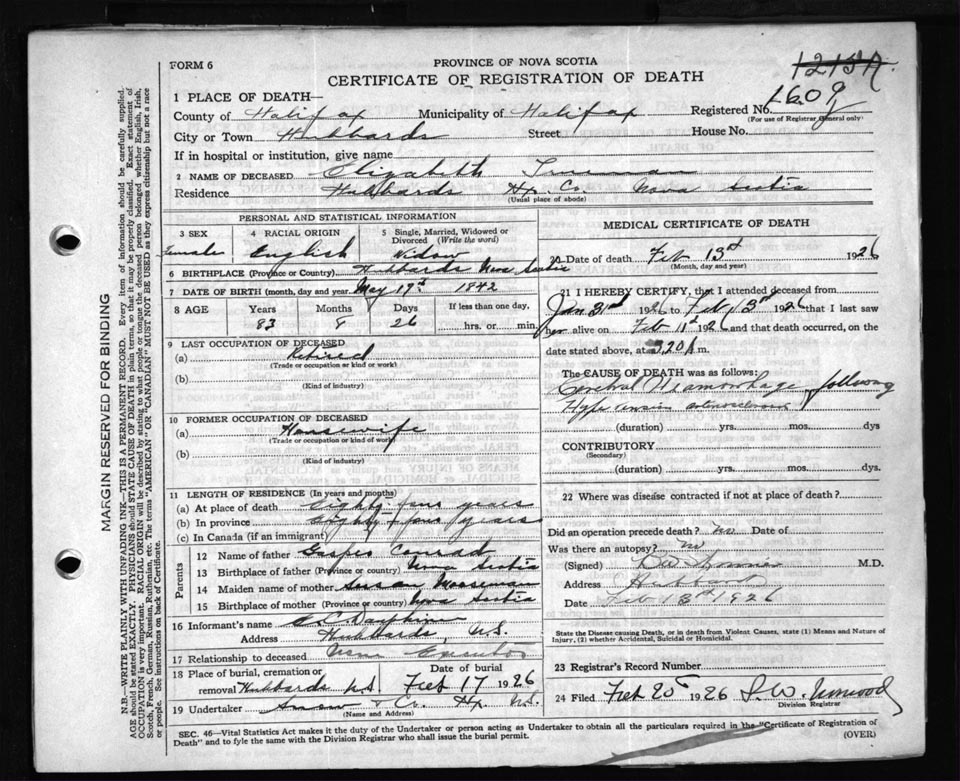 FORM 6
PROVINCE OF NOVA SCOTIA
CERTIFICATE OF REGISTRATION OF DEATH
1213A.
1 PLACE OF DEATH—
County of Halifax Municipality of Halifax Registered No. 1609
(For use of Registrar General only)
City or Town Hubbards Street House No.
If in hospital or institution, give name
2 NAME OF DECEASED Elizabeth Trueman
Residence Hubbards Hx. Co. Nova Scotia
(Usual place of abode)
PERSONAL AND STATISTICAL INFORMATION
3 SEX 4 RACIAL ORIGIN 5 Single, Married, Widowed or Divorced (Write the word)
Female English Widow
6 BIRTHPLACE (Province or Country) Hubbards Nova Scotia
7 DATE OF BIRTH (month, day and year) May 19th 1842
8 AGE Years Months Days If less than one day,
83 8 26 hrs. or min.
9 LAST OCCUPATION OF DECEASED
(a) Retired
(Trade or occupation or kind of work)
(b)
(Kind of industry)
10 FORMER OCCUPATION OF DECEASED
(a) Housewife
(Trade or occupation or kind of work)
(b)
(Kind of industry)
11 LENGTH OF RESIDENCE (In years and months)
(a) At place of death eighty four years
(b) In province eighty four years
(c) In Canada (if an immigrant)
Parents
12 Name of father Gasper Conrad
13 Birthplace of father (Province or country) Nova Scotia
14 Maiden name of mother Susan Mooseman
15 Birthplace of mother (Province or country) Nova Scotia
16 Informant's name
Address Hubbards, N.S.
17 Relationship to deceased None Executor
18 Place of burial, cremation or Date of burial
removal Hubbards N.S. Feb 17 1926
19 Undertaker Snow & Co. Hx N.S.
(Name and Address)
MEDICAL CERTIFICATE OF DEATH
20 Date of death Feb 13th 1926
(Month, day and year)
21 I HEREBY CERTIFY, that I attended deceased from
Jan 31st 1926 to Feb 13th 1926 that I last saw
her alive on Feb 11th 1926 and that death occurred, on the
date stated above, at 3.20 A m.
The CAUSE OF DEATH was as follows:
Cerebral Heamorrhage following
Hypertension arteriosclerosis
(duration) yrs. mos. dys
CONTRIBUTORY
(Secondary)
(duration) yrs. mos. dys.
22 Where was disease contracted if not at place of death?
Did an operation precede death? no Date of
Was there an autopsy? no
(Signed) M.D.
Address Hubbards
Date Feb 13th 1926
State the Disease causing Death, or in death from Violent Causes, state (1) Means and Nature of
Injury, (2) whether Accidental, Suicidal or Homicidal.
23 Registrar's Record Number
24 Filed Feb 20th 1926
Division Registrar
SEC. 46—Vital Statistics Act makes it the duty of the Undertaker or person acting as Undertaker to obtain all the particulars required in the "Certificate of Registration of
Death" and to fyle the same with the Division Registrar who shall issue the burial permit. (OVER)
MARGIN RESERVED FOR BINDING
N.B.—WRITE PLAINLY WITH UNFADING INK—THIS IS A PERMANENT RECORD. Every item of information should be carefully supplied.
AGE should be stated EXACTLY. PHYSICIANS should STATE CAUSE OF DEATH in plain terms, so that it may be properly classified. Exact statement of
OCCUPATION is very important. RACIAL ORIGIN will be described by stating to what people or tongue the deceased person belonged whether English, Irish,
Scotch, French, German, Russian, Ruthenian, etc. The terms "AMERICAN" OR "CANADIAN" MUST NOT BE USED as they express citizenship but not a race
or people. See instructions on back of Certificate.